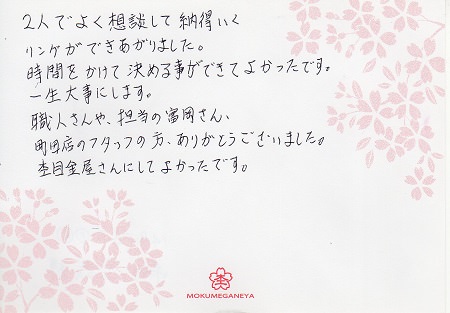 2人でよく想談して納得いく
リングができあがりました。
時間をかけて決める事ができてよかったです。
一生大事にします。
職人さんや、担当の富岡さん、
町田店のフタッフの方、ありがとうございました。
杢目金屋さんにしてよかったです。
MOKUMEGANEYA